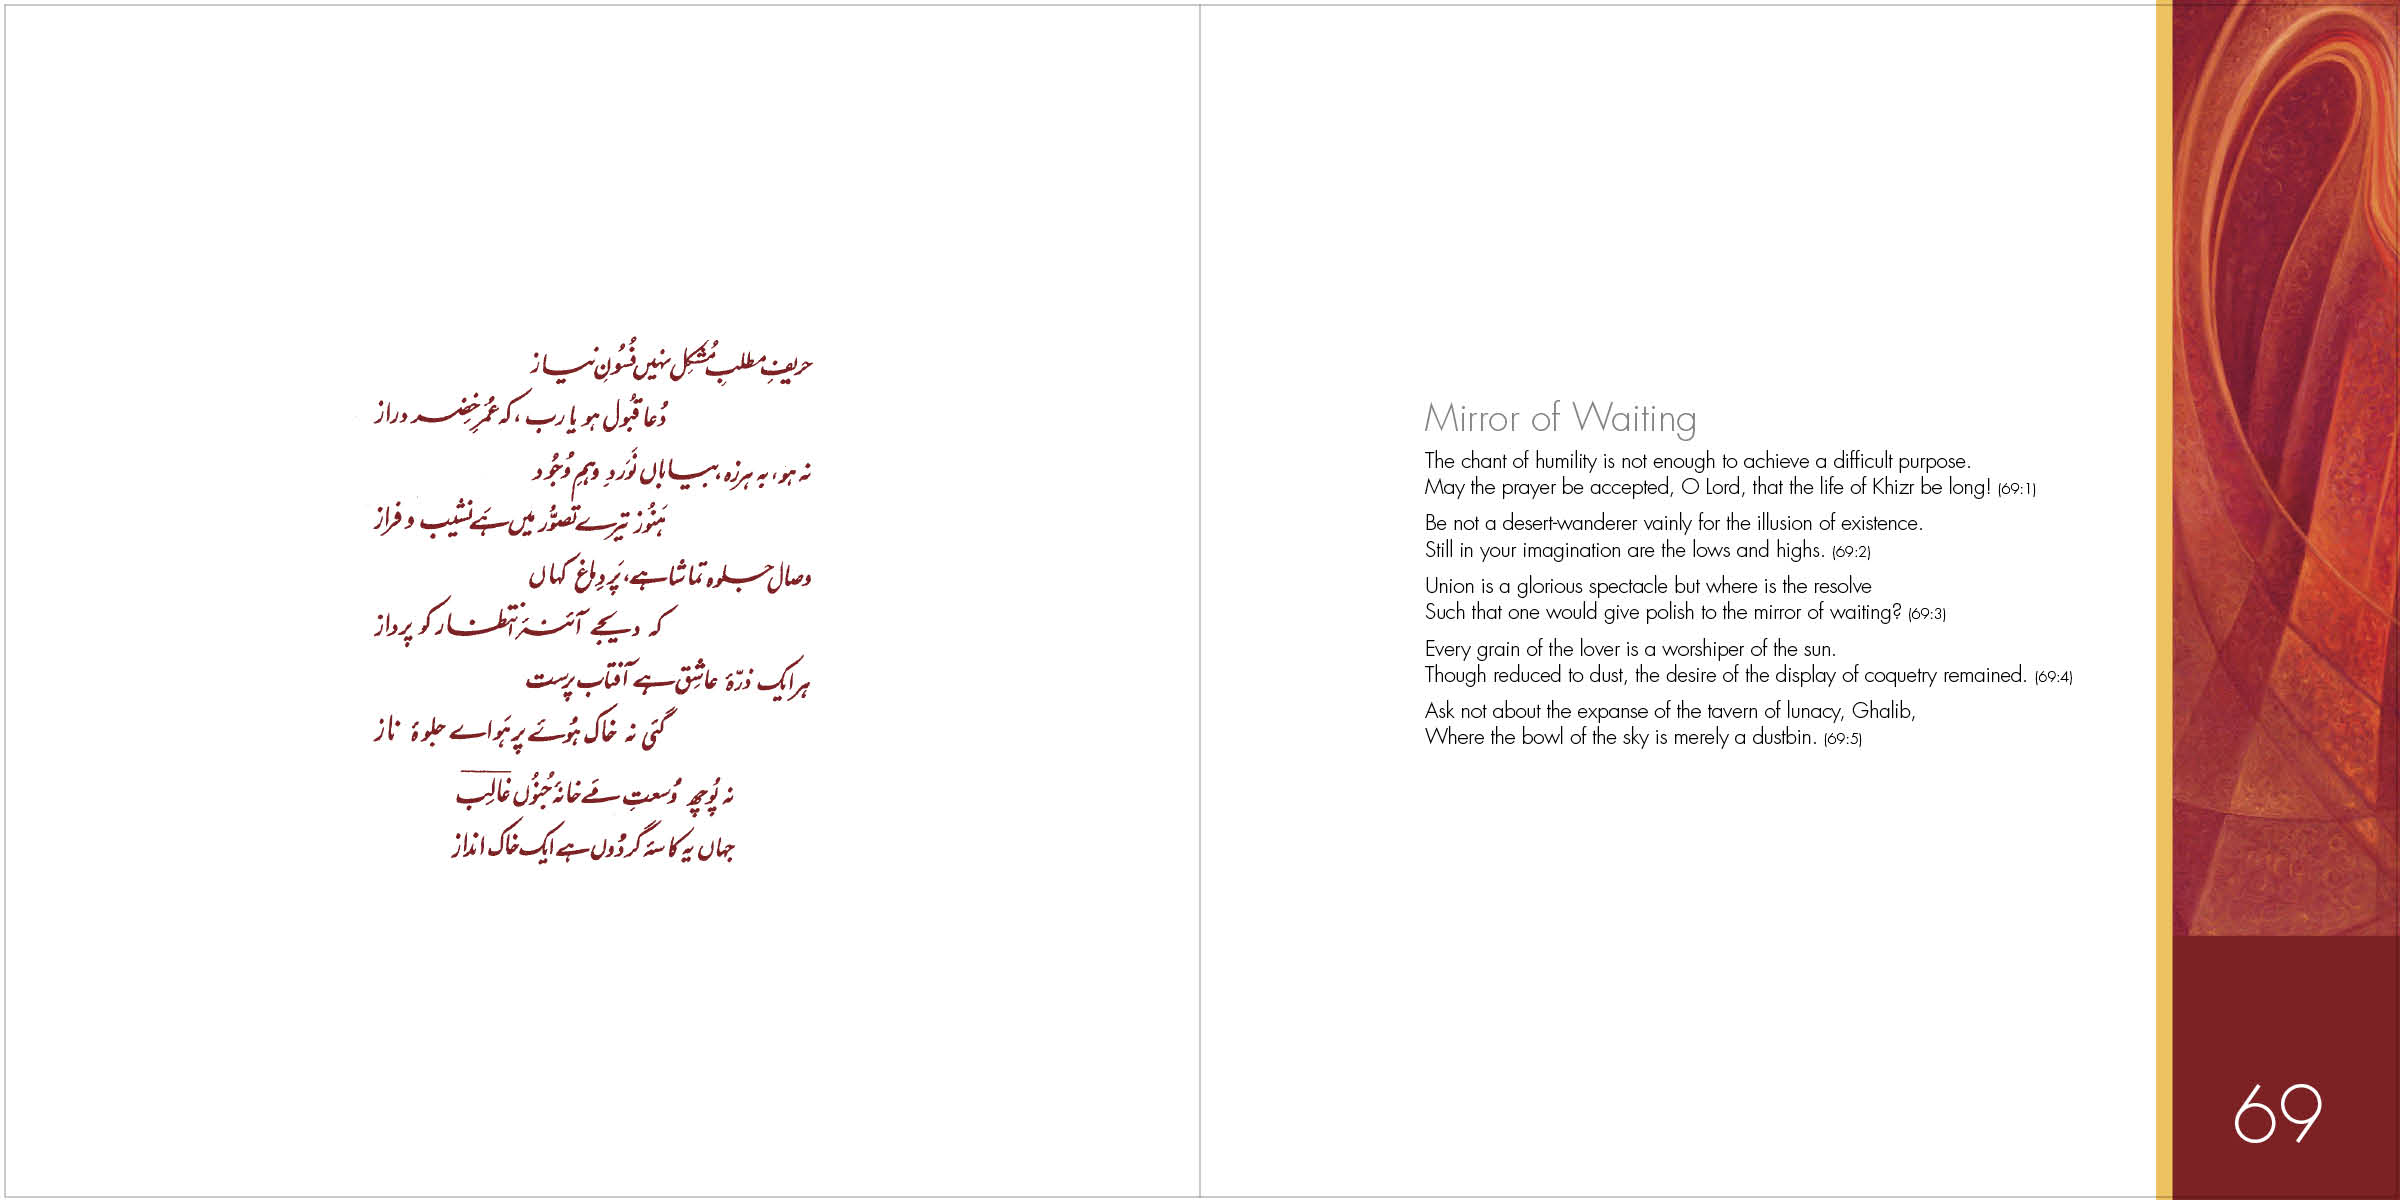 حریفِ مطلبِ مُشکِل نہیں فُسُونِ نیاز
دُعا قبُول ہو یا رب، کہ عُمرِ خِضر دراز
نہ ہو، بہ ہرزہ، بیاباں نَوَردِ وہمِ وُجُود
ہَنُوز تیرے تصوُّر میں ہَے نشیب و فراز
وصال جلوہ تماشا ہے، پَر دِماغ کہاں
کہ دیجے آئنۂ انتظار کو پرداز
ہر ایک ذرّۂ عاشِق ہے آفتاب پرست
گئی نہ خاک ہُوئے پر ہَواے جلوۂ ناز
نہ پُوچھ وُسعتِ مَے خانۂ جُنُوں غالِب
جہاں یہ کاسۂ گردُوں ہے ایک خاک انداز
Mirror of Waiting
The chant of humility is not enough to achieve a difficult purpose.
May the prayer be accepted, O Lord, that the life of Khizr be long! (69:1)
Be not a desert-wanderer vainly for the illusion of existence.
Still in your imagination are the lows and highs. (69:2)
Union is a glorious spectacle but where is the resolve
Such that one would give polish to the mirror of waiting? (69:3)
Every grain of the lover is a worshiper of the sun.
Though reduced to dust, the desire of the display of coquetry remained. (69:4)
Ask not about the expanse of the tavern of lunacy, Ghalib,
Where the bowl of the sky is merely a dustbin. (69:5)
69